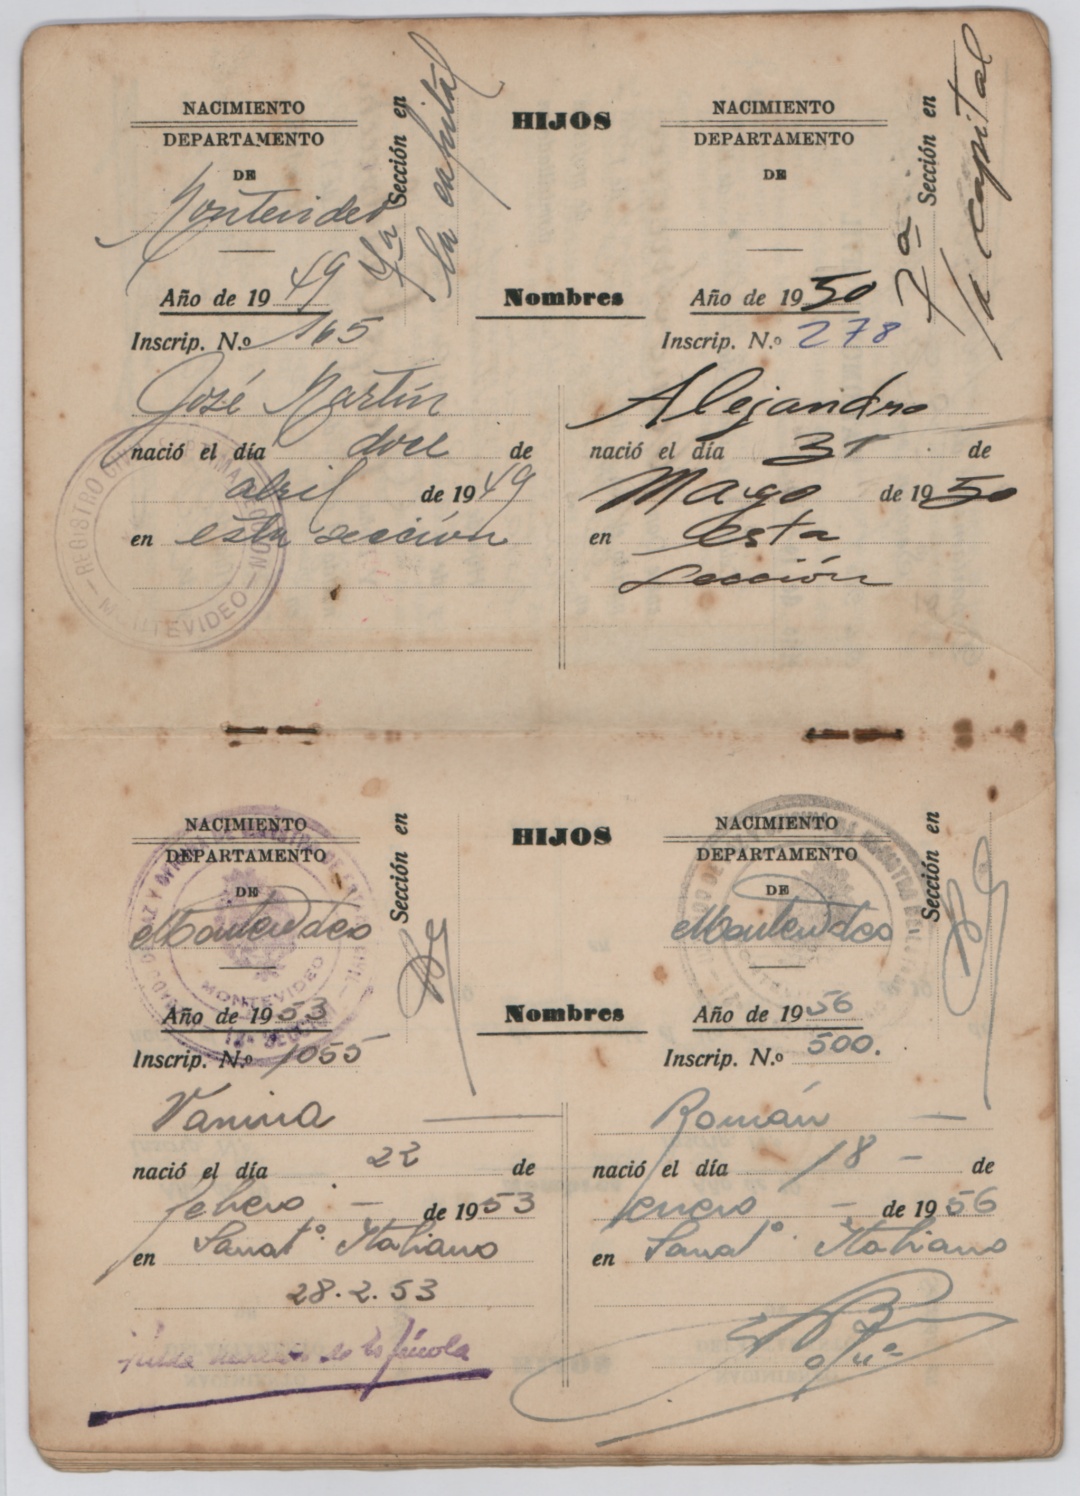 HIJOS
NACIMIENTO
DEPARTAMENTO
DE
Montevideo
7ª Sección en
la capital
Año de 1949
Inscrip. N.º 165
Nombres
José Martín
nació el día doce de
abril de 1949
en esta sección
REGISTRO
MONTEVIDEO
NACIMIENTO
DEPARTAMENTO
DE
7ª Sección en
la capital
Año de 1950
Inscrip. N.º 278
Alejandro
nació el día 31 de
Mayo de 1950
en esta
Sección
HIJOS
NACIMIENTO
DEPARTAMENTO
DE
Montevideo
Sección en
MONTEVIDEO
Año de 1953
Inscrip. N.º 1055
Nombres
Vanina
nació el día 22 de
febrero de 1953
en Sanatº. Italiano
28.2.53
NACIMIENTO
DEPARTAMENTO
DE
Montevideo
Sección en
Año de 1956
Inscrip. N.º 500.
Román
nació el día 18 de
enero de 1956
en Sanatº. Italiano